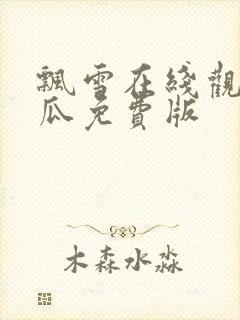 飄雪在綫觀
瓜免費版
木森水淼